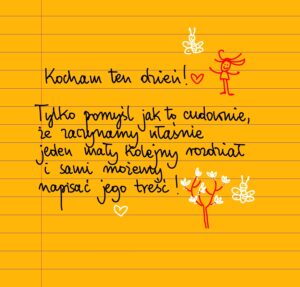 Kocham ten dzień!
Tylko pomyśl jak to cudownie,
że zaczynamy właśnie
jeden mały kolejny rozdział
i sami możemy
napisać jego treść!